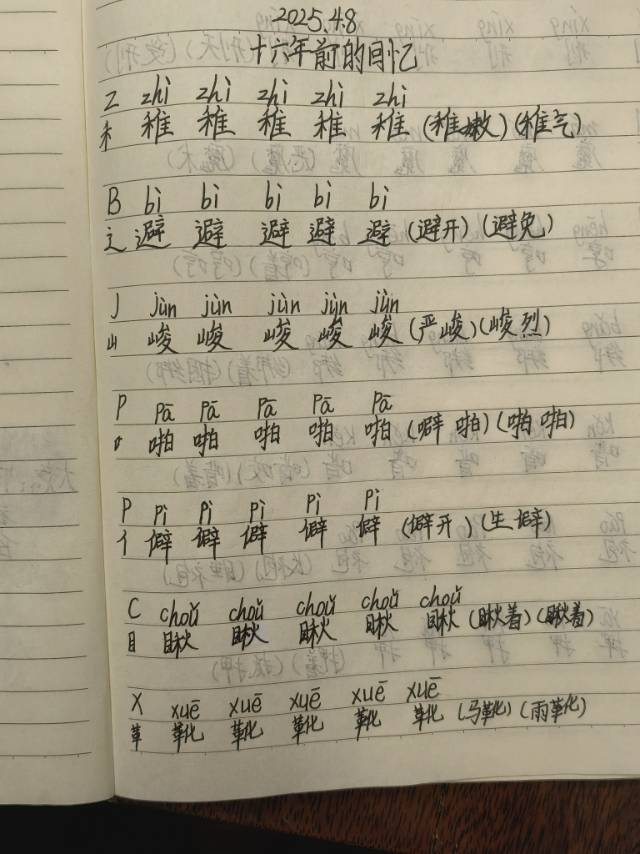 2025.4.8
十六年前的回忆
Z zhì zhì zhì zhì zhì
禾 稚 稚 稚 稚 稚 (稚嫩)(稚气)
B bì bì bì bì bì
辶 避 避 避 避 避 (避开)(避免)
J jùn jùn jùn jùn jùn
山 峻 峻 峻 峻 峻 (严峻)(峻烈)
P pā pā pā pā pā
口 啪 啪 啪 啪 啪 (噼啪)(啪啪)
P pì pì pì pì pì
亻 僻 僻 僻 僻 僻 (僻开)(生僻)
C choǔ choǔ choǔ choǔ choǔ
目 瞅 瞅 瞅 瞅 瞅 (瞅着)(瞅着)
X xuē xuē xuē xuē xuē
革 靴 靴 靴 靴 靴 (马靴)(雨靴)